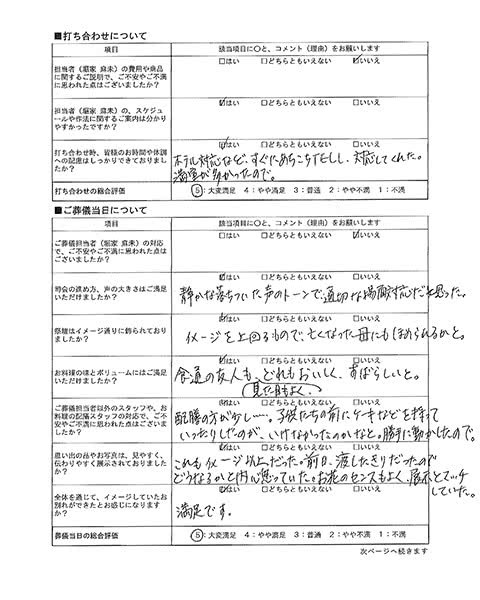 ■打ち合わせについて
項目 該当項目に○と、コメント（理由）をお願いします
担当者（堀家 麻未）の費用や商品に関するご説明で、ご不安やご不満に思われた点はございましたか？
□はい □どちらともいえない ☑いいえ
担当者（堀家 麻未）の、スケジュールや作法に関するご案内は分かりやすかったですか？
☑はい □どちらともいえない □いいえ
打ち合わせ時、皆様のお時間や体調への配慮はしっかりできておりましたか？
☑はい □どちらともいえない □いいえ
ホテル対応など、すぐにあちこちTELし、対応してくれた。
満室が多かったので。
打ち合わせの総合評価
⑤：大変満足 4：やや満足 3：普通 2：やや不満 1：不満
■ご葬儀当日について
項目 該当項目に○と、コメント（理由）をお願いします
ご葬儀担当者（堀家 麻未）の対応で、ご不安やご不満に思われた点はございましたか？
□はい □どちらともいえない ☑いいえ
司会の進め方、声の大きさはご満足いただけましたか？
☑はい □どちらともいえない □いいえ
静かな落ちついた声のトーンで、適切な場面対応だと思った。
祭壇はイメージ通りに飾られておりましたか？
☑はい □どちらともいえない □いいえ
イメージを上回るもので、亡くなった母にもほめられるかと。
お料理の味とボリュームにはご満足いただけましたか？
☑はい □どちらともいえない □いいえ
食通の友人も、どれもおいしく、すばらしいと。
見た目もよく、
ご葬儀担当者以外のスタッフや、お料理の配膳スタッフの対応で、ご不安やご不満に思われた点はございましたか？
□どちらともいえない □いいえ
配膳の方が少し……。子供たちの前にケーキなどを持って
いったりしたのが、いけなかったのかいなと。勝手に動かしたので。
思い出の品やお写真は、見やすく、伝わりやすく展示されておりましたか？
☑はい □どちらともいえない □いいえ
これもイメージ以上だった。前日、渡したきりだったので
どうなるかと内心思っていた。お花のセンスもよく、展示とマッチ
していた。
全体を通じて、イメージしていたお別れができたとお感じになりますか？
☑はい □どちらともいえない □いいえ
満足です。
葬儀当日の総合評価
⑤：大変満足 4：やや満足 3：普通 2：やや不満 1：不満
次ページへ続きます